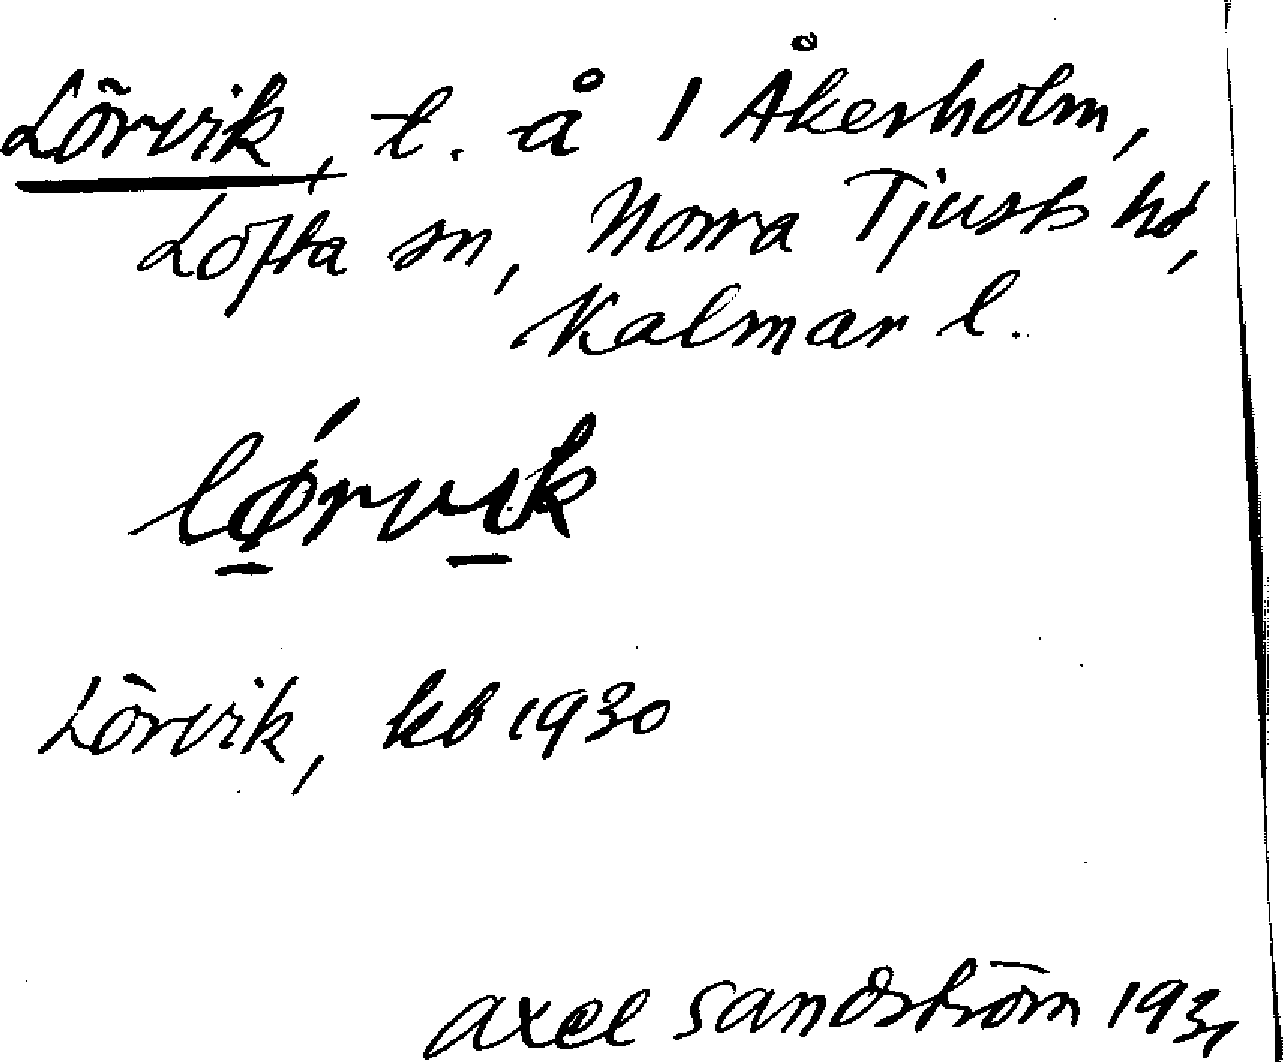 Lörvik, t. å 1 Åkerholm,
Lofta sn, Norra Tjusts hd,
Kalmar l.
lǿrvik
Lörvik, kb 1930
Axel Sandström 1931